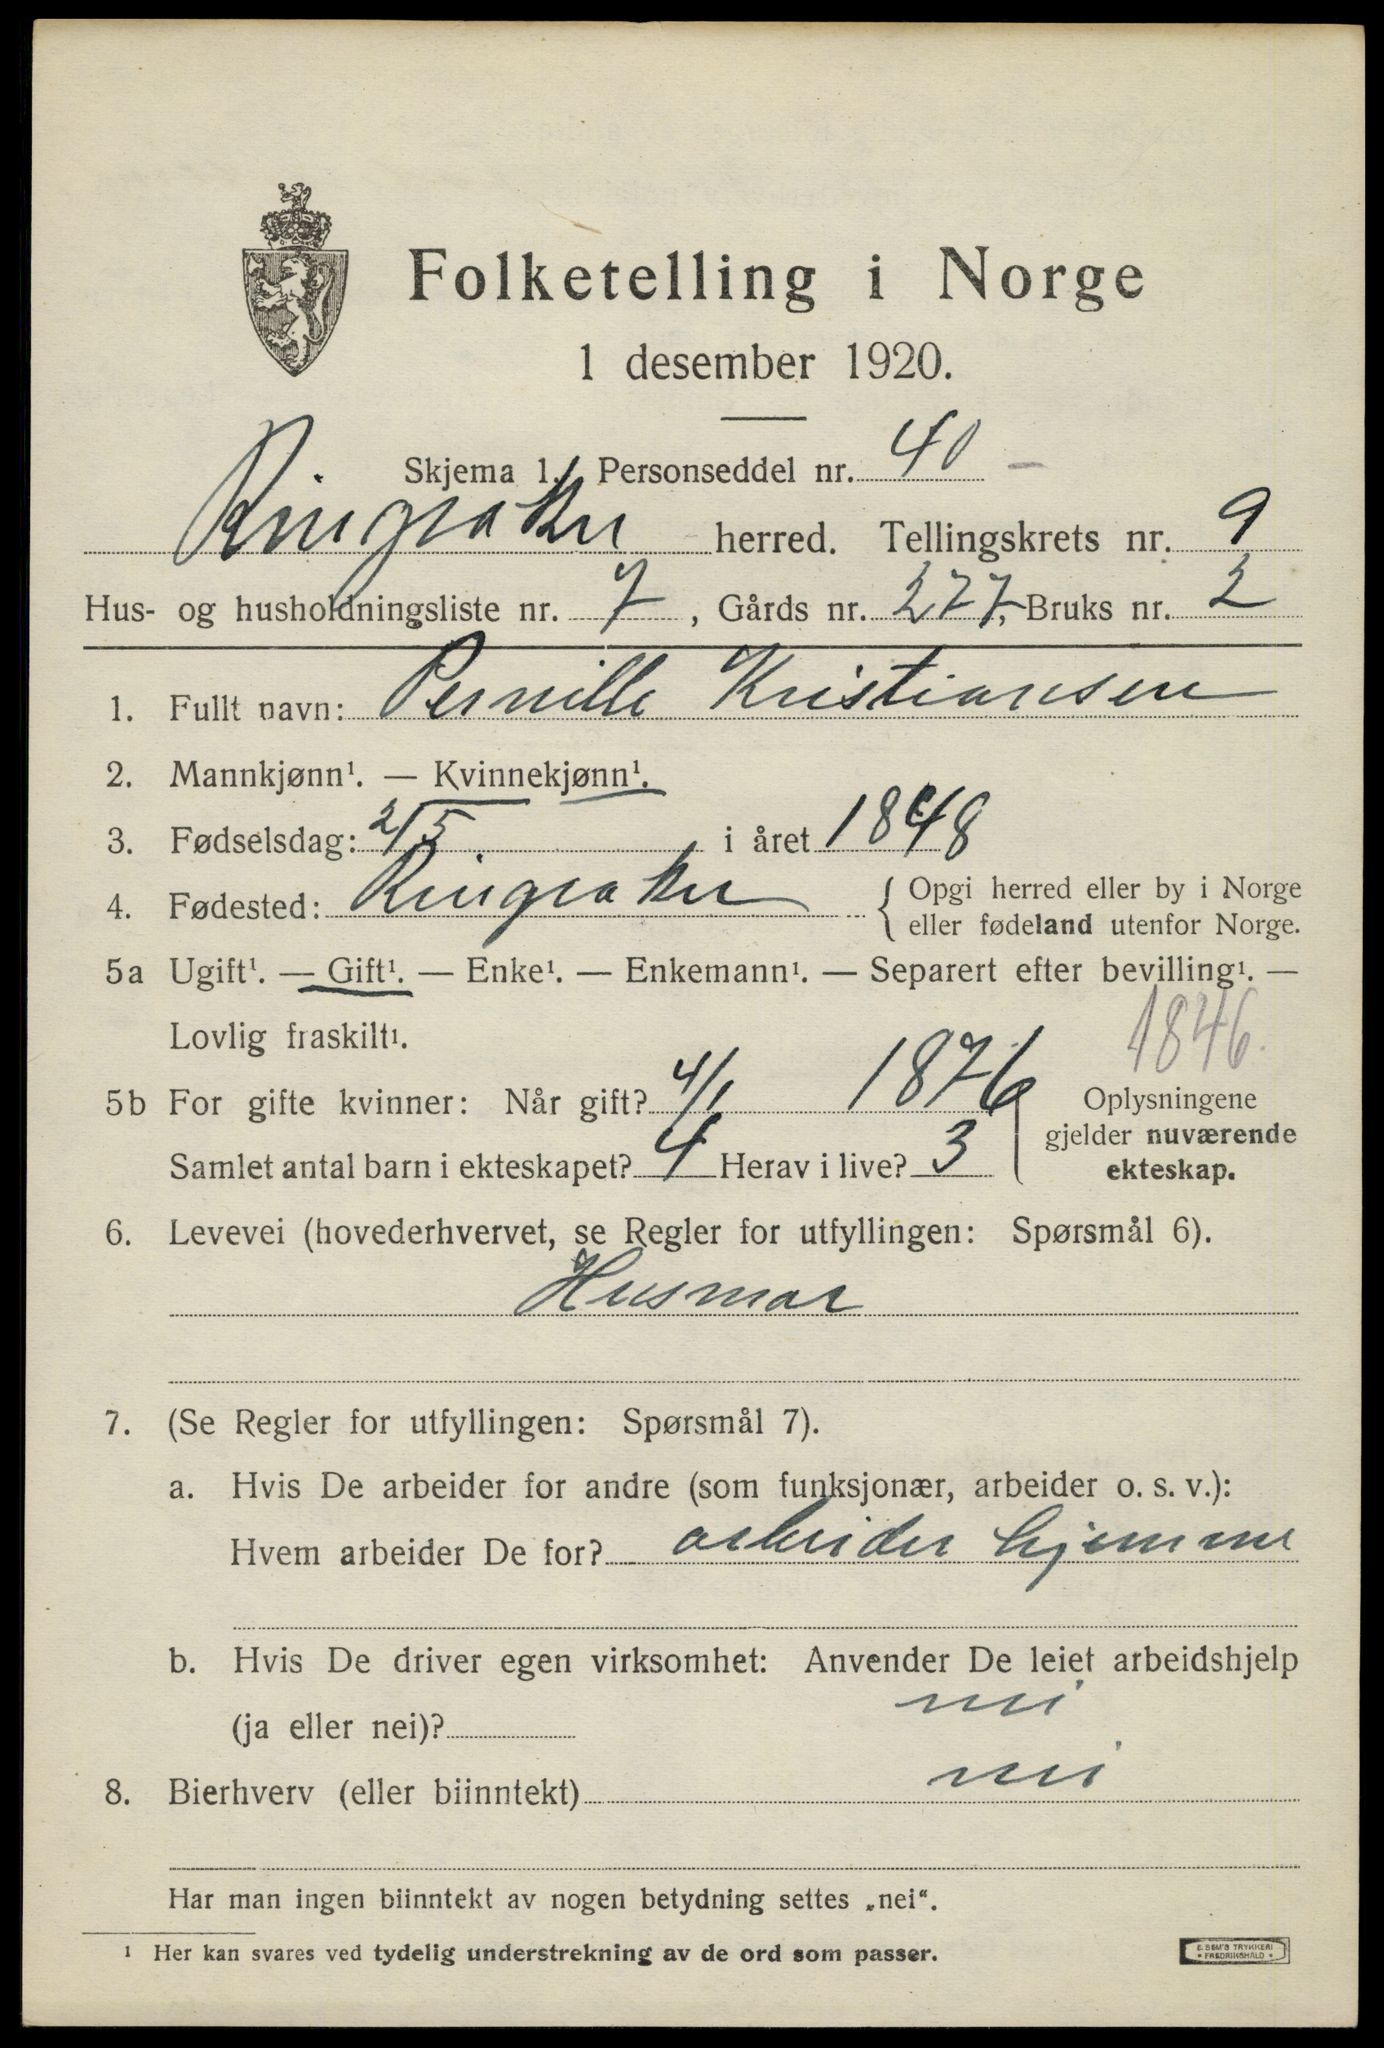 Folketelling i Norge
1 desember 1920.
Skjema 1. Personseddel nr. 40 –
Ringsaker herred. Tellingskrets nr. 9
Hus- og husholdningsliste nr. 7, Gårds nr. 277, Bruks nr. 2
1. Fullt navn: Pernille Kristiansen
2. Mannkjønn¹. — Kvinnekjønn¹.
3. Fødselsdag: 2/5 i året 1848
4. Fødested: Ringsaker { Opgi herred eller by i Norge
eller fødeland utenfor Norge.
5a Ugift¹. — Gift¹. — Enke¹. — Enkemann¹. — Separert efter bevilling¹. —
Lovlig fraskilt¹.
1846.
5b For gifte kvinner: Når gift? 4/1 1876
Samlet antal barn i ekteskapet? 4 Herav i live? 3
Oplysningene
gjelder nuværende
ekteskap.
6. Levevei (hovederhvervet, se Regler for utfyllingen: Spørsmål 6).
Husmor
7. (Se Regler for utfyllingen: Spørsmål 7).
a. Hvis De arbeider for andre (som funksjonær, arbeider o. s. v.):
Hvem arbeider De for? arbeider hjemme
b. Hvis De driver egen virksomhet: Anvender De leiet arbeidshjelp
(ja eller nei)? nei
8. Bierhverv (eller biinntekt) nei
Har man ingen biinntekt av nogen betydning settes „nei“.
¹ Her kan svares ved tydelig understrekning av de ord som passer.
E. SEM'S TRYKKERI
• FREDRIKSHALD •